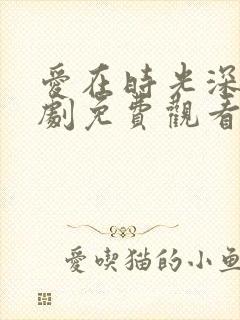 愛在時光深
劇免費觀看
愛喫猫的小魚